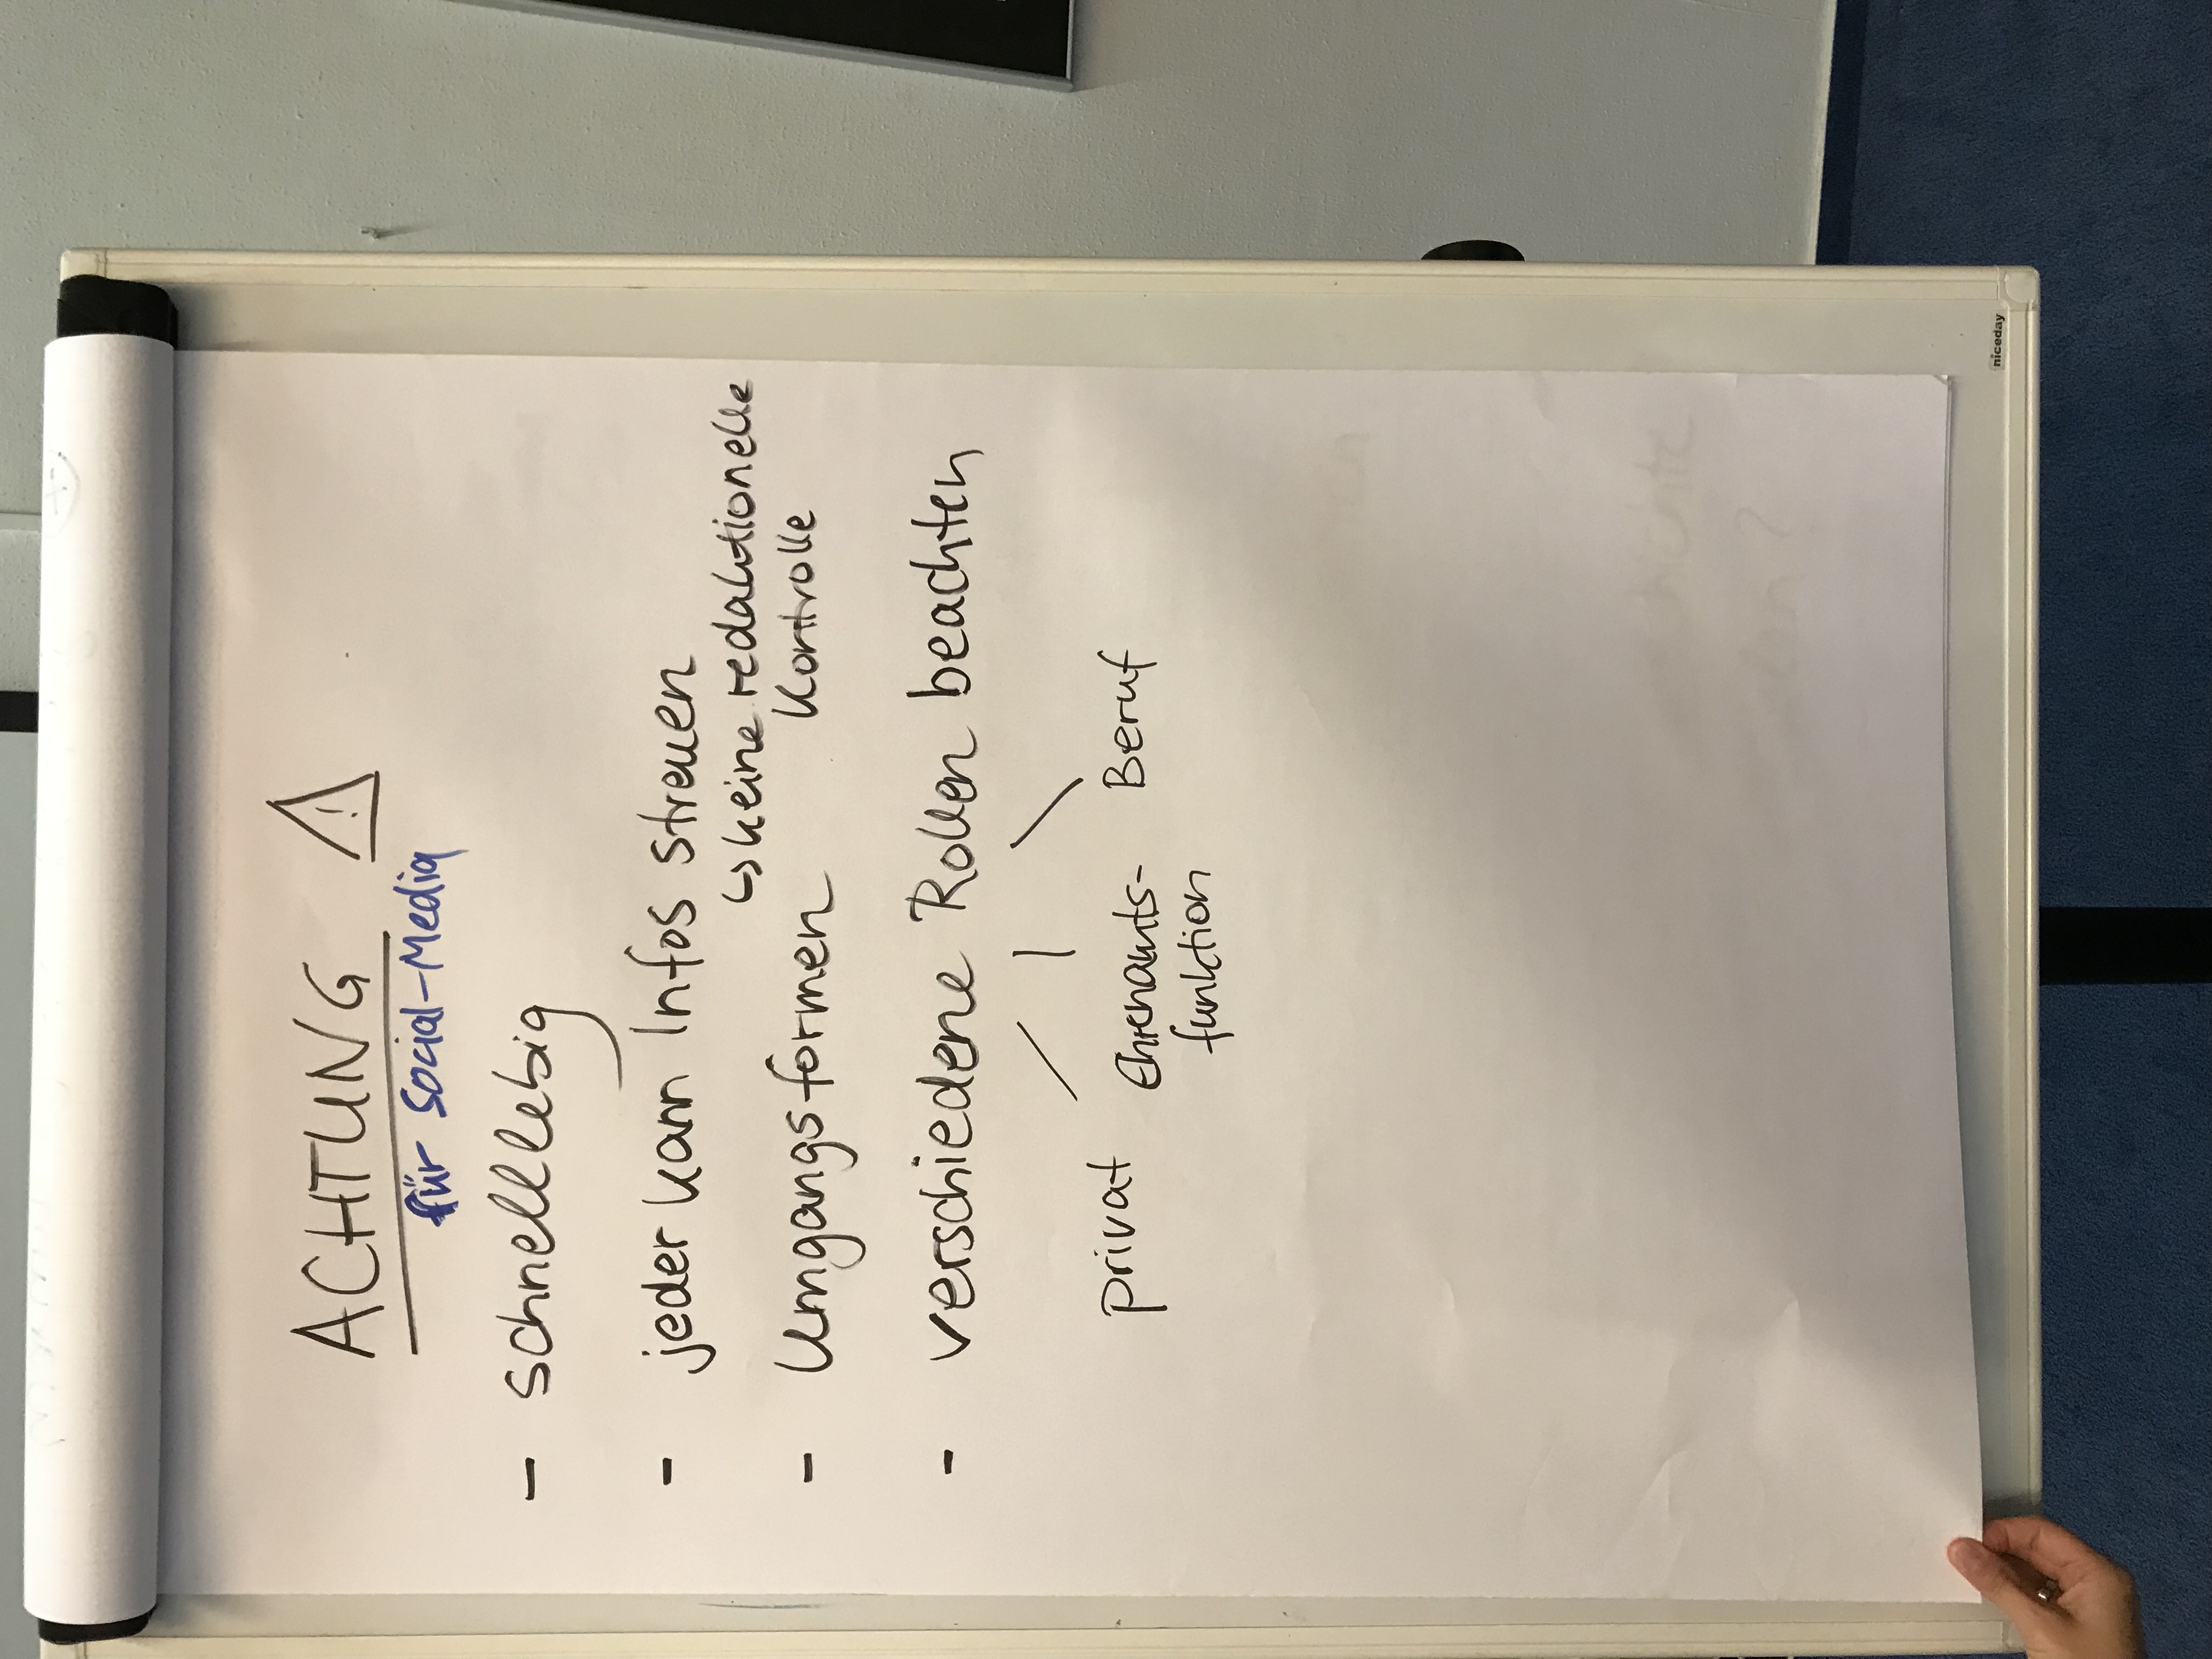 ACHTUNG
für Social-Media
- schnelllebig
- jeder kann Infos streuen
↳ keine redaktionelle
Kontrolle
- Umgangsformen
- verschiedene Rollen beachten
privat Ehrenamts- Beruf
funktion
niceday